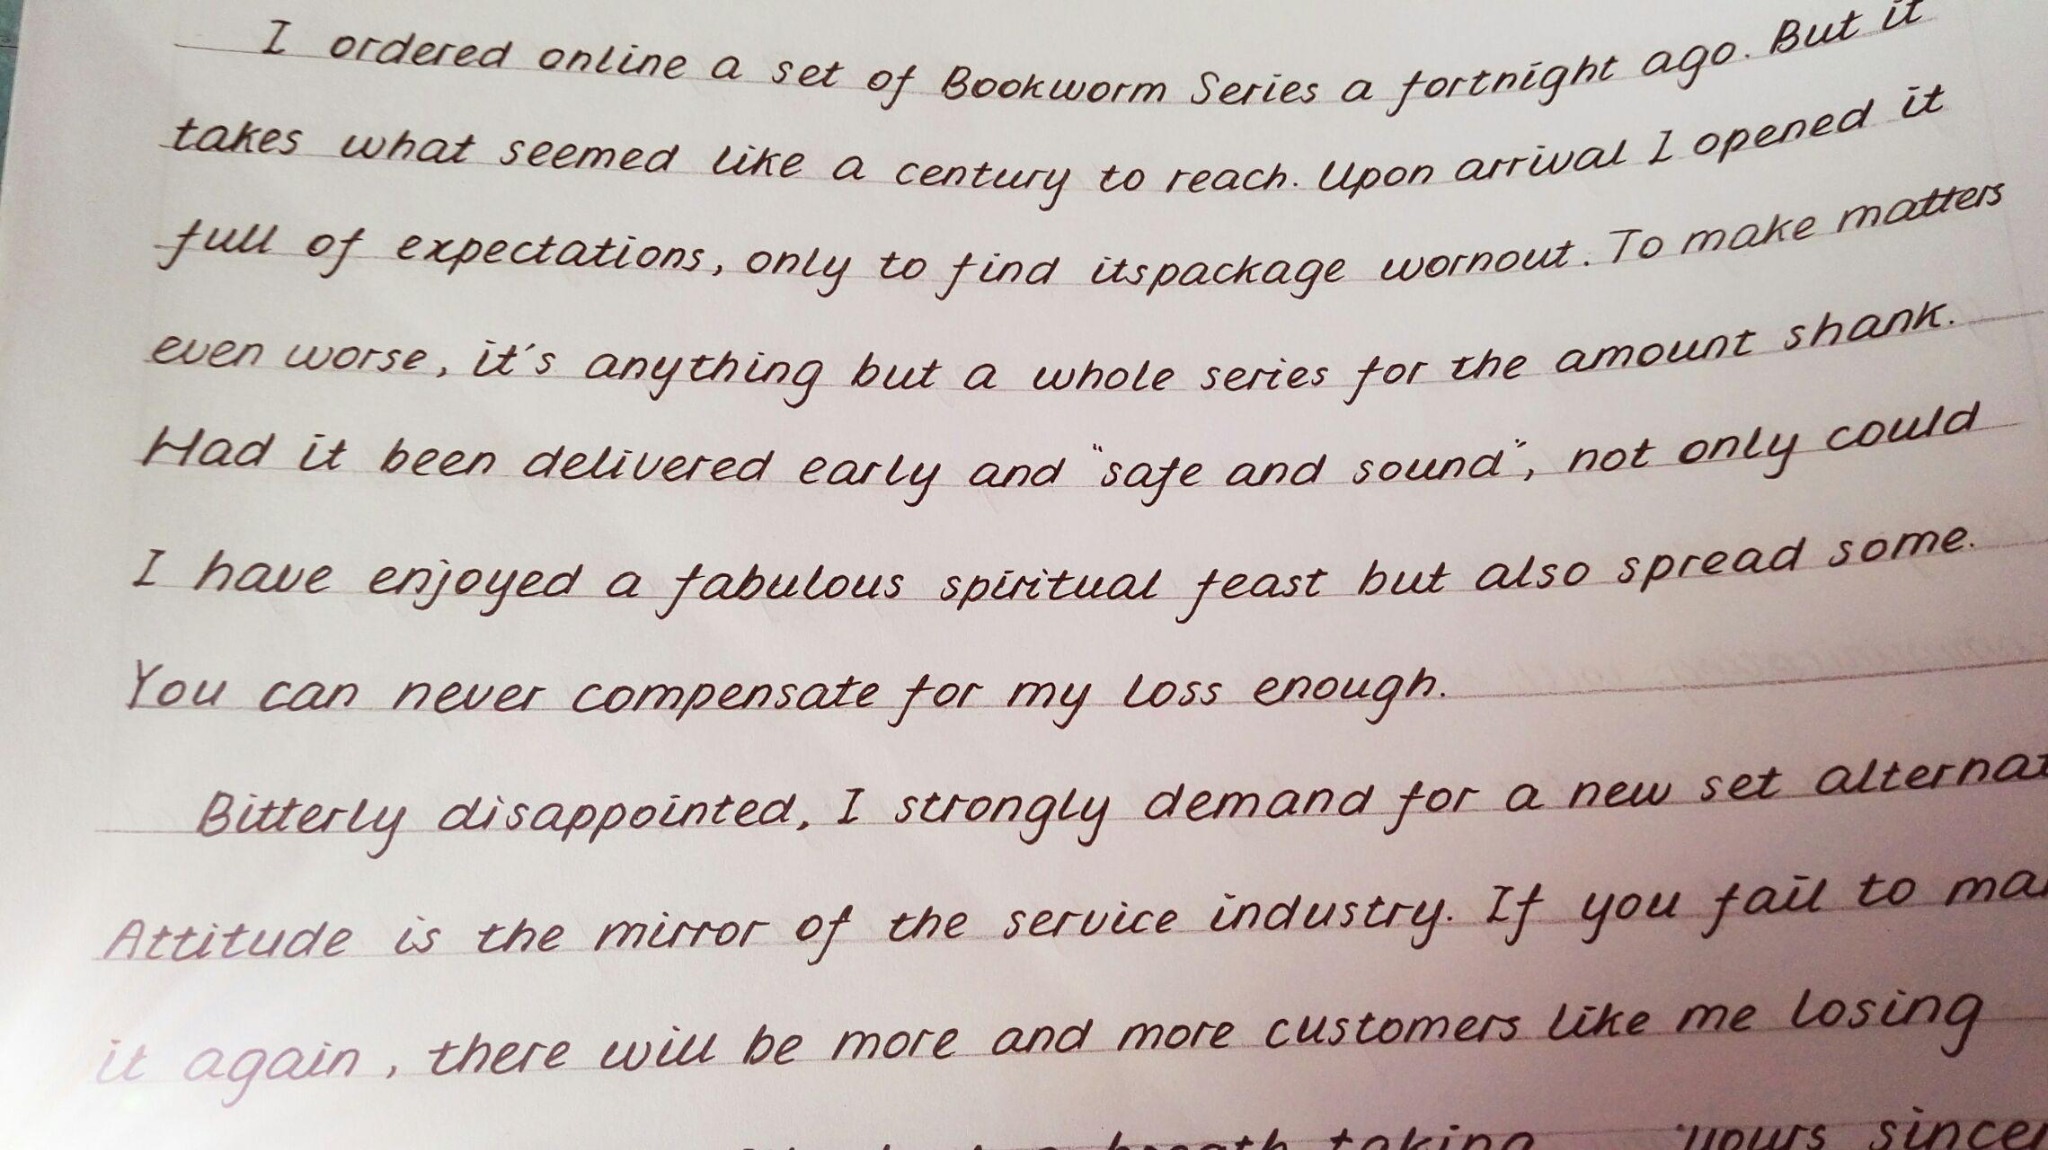 I ordered online a set of Bookworm Series a fortnight ago. But it
takes what seemed like a century to reach. Upon arrival I opened it
full of expectations, only to find itspackage wornout. To make matters
even worse, it's anything but a whole series for the amount shank.
Had it been delivered early and "safe and sound", not only could
I have enjoyed a fabulous spiritual feast but also spread some.
You can never compensate for my loss enough.
Bitterly disappointed, I strongly demand for a new set alternat
Attitude is the mirror of the service industry. If you fail to ma
it again, there will be more and more customers like me losing
breath taking yours sincer